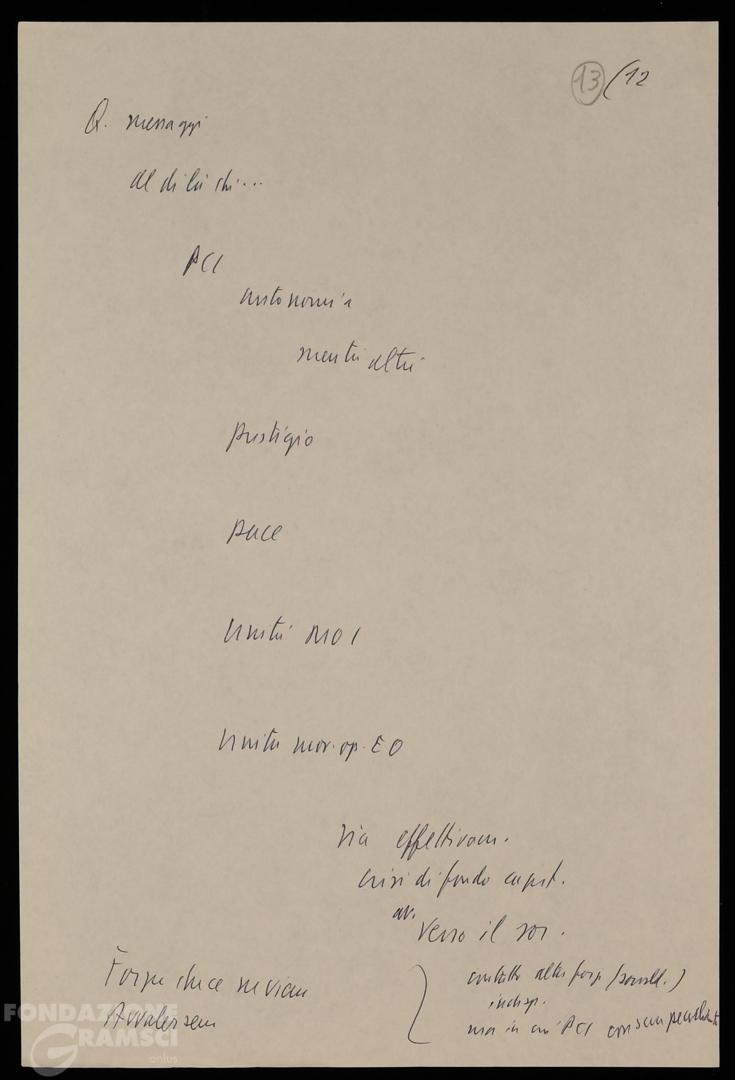 13/12
Q. messaggi
al di là chi...
PCI
autonomia
meriti altri
prestigio
pace
Unità MOI
Unità mov. op. EO
Via effettivam.
crisi di fondo capit.
av.
verso il soc.
Forze che ce ne
Avvalersene
contatto altre forze (sociald.)
indisp.
ma in cui PCI con sue peculiarità
FONDAZIONE
GRAMSCI
onlus